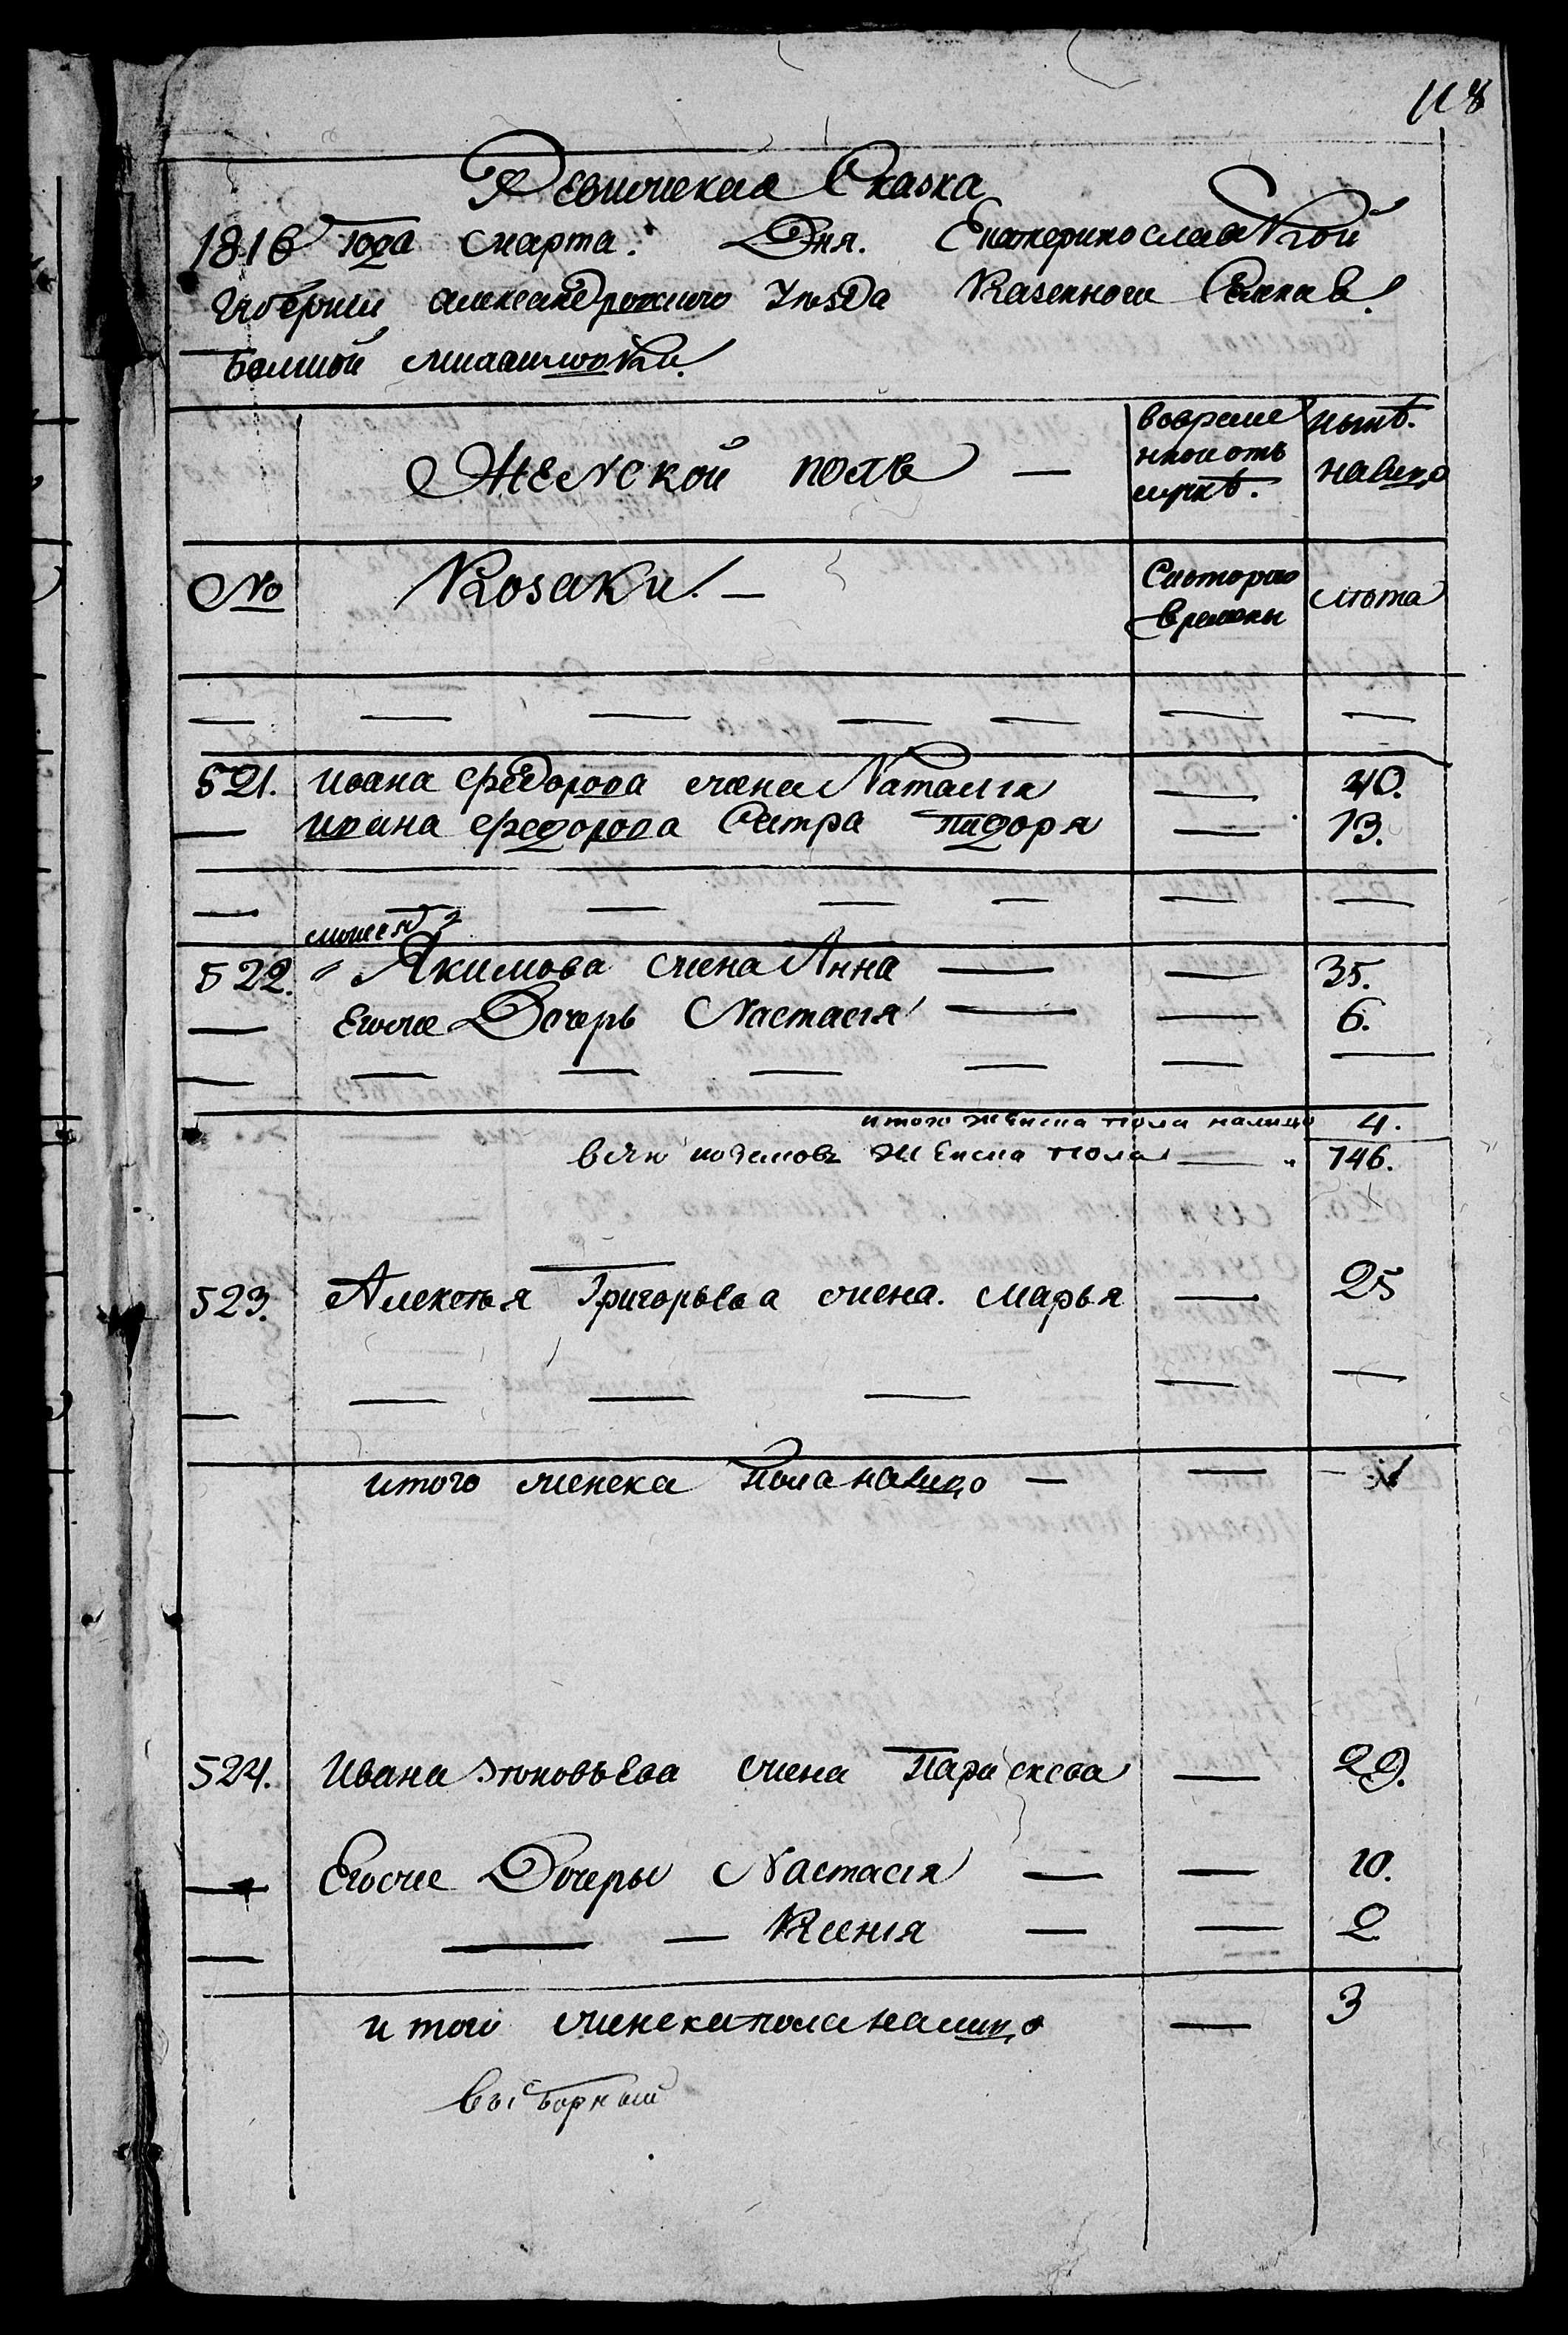 118
Ревижская Сказка
1816 года марта. Дня. Екатеринославской
Губернии александровского уѣзда Казенного Селенія
Большой михайловки.
Женской полъ —
вовременной отлучкѣ.
нынѣ налицо
№ Козаки. —
Скоторого времени
лѣта
521. ивана федорова жена Наталія — 40.
— ивана федорова Сестра тидоря — 13.
моисея
522. Якимова жена Анна — — 35.
— Егоже Дочерь Настасія — — 6.
итого женска пола налицо 4.
женска пола — 746.
523. Алексѣя Григорьева жена. марья — 25
итого женска пола налицо — — 1
524. Ивана зѣновьева жена Параскева — 29.
— Егоже Дочеры Настасія — — 10.
— — — Ксенія — — 2
итого женска пола налицо — 3
выборный